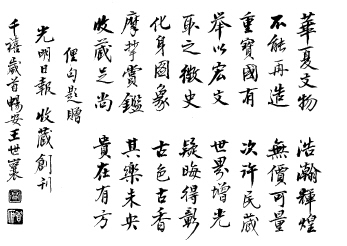 華夏文物 浩瀚輝煌
不能再造 無價可量
重寶國有 次許民藏
舉以宏文 世界增光
取之徵史 疑晦得彰
化身圖象 古色古香
摩挲賞鑑 其樂未央
收藏足尚 貴在有方
俚句題贈
光明日報 收藏創刊
千禧歲首暢安王世襄